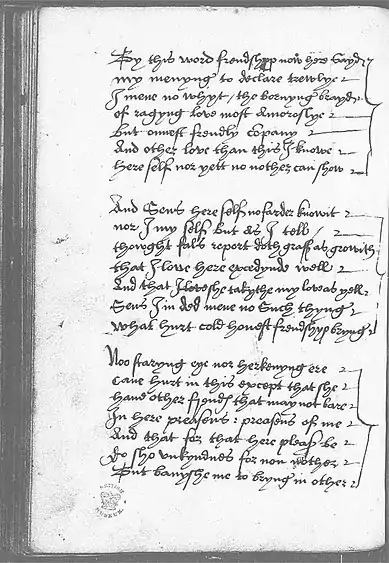 By this word frendshypp now here sayd
my menyng to declare trewlye
I mene no whyt / the bornyng brayd
of ragyng love most Amoroslye
but onnest frendly company
And other love than this I knowe
here self nor yett no nother can show
And Sens here self no farder knowit
nor I my self but as I tell /
thowght fals report doth grass as growith
that I love here excedynde well
And that I love she takythe my love as yell
Sens I in ded mene no such thyng
what hurt cold honest frendshyp bryng
Noo staryng eye nor herkenyng ere
Cane hurt in this except that she
have other frends that may not bare
In here presens : presens of me
And that for that here pleas be
do sho unkyndnes for non nother
But banyshe me to bryng in other
BRITISH MUSEUM